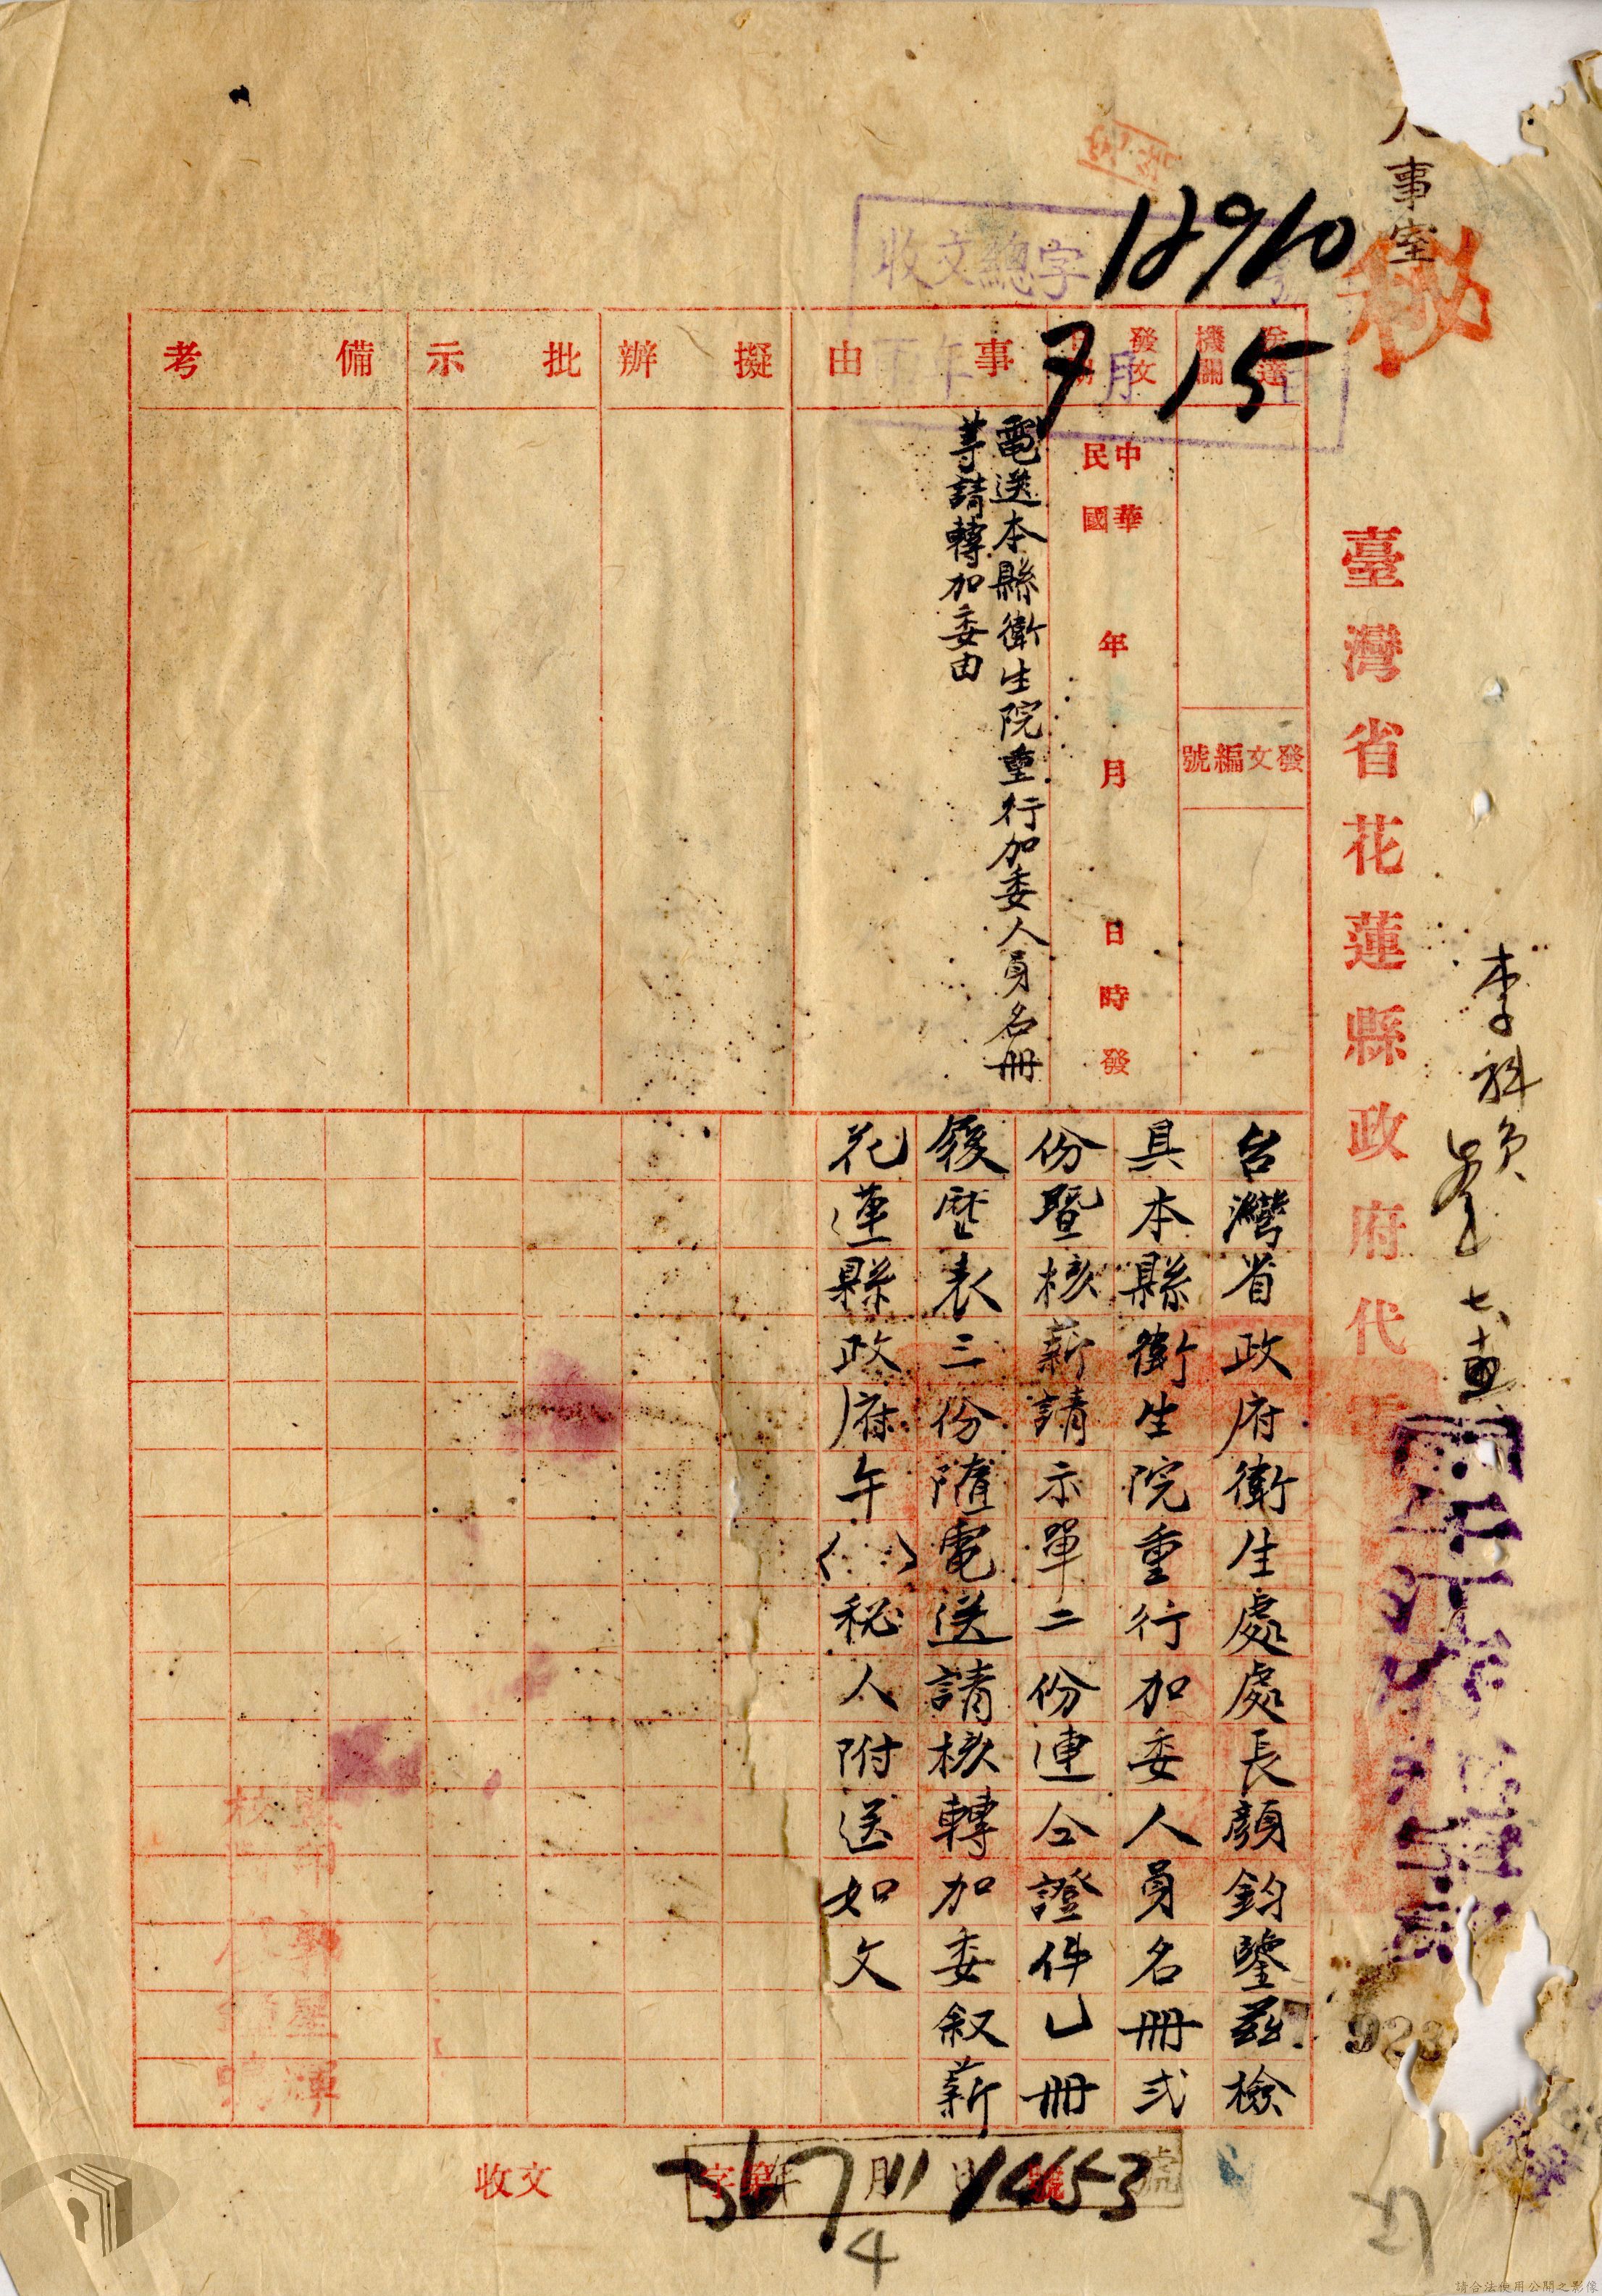 人事室
秘
收文總字 12910 號
年 7 月 15
臺灣省花蓮縣政府代電
送達機關
發文編號
發文日期
中華民國 年 月 日 時 發
事由
電送本縣衛生院重行加委人員名冊
等請轉加委由
擬辦
批示
備考
台灣省政府衛生處處長顏鈞鑒茲檢
具本縣衛生院重行加委人員名冊弍
份暨核薪請示單二份連仝證件乙冊
履歷表三份隨電送請核轉加委敘薪
花蓮縣政府午( )秘人附送如文
監印 郭星輝
校對
收文 字第 號
36年7月11日 14653 號
4
923
請合法使用公開之影像